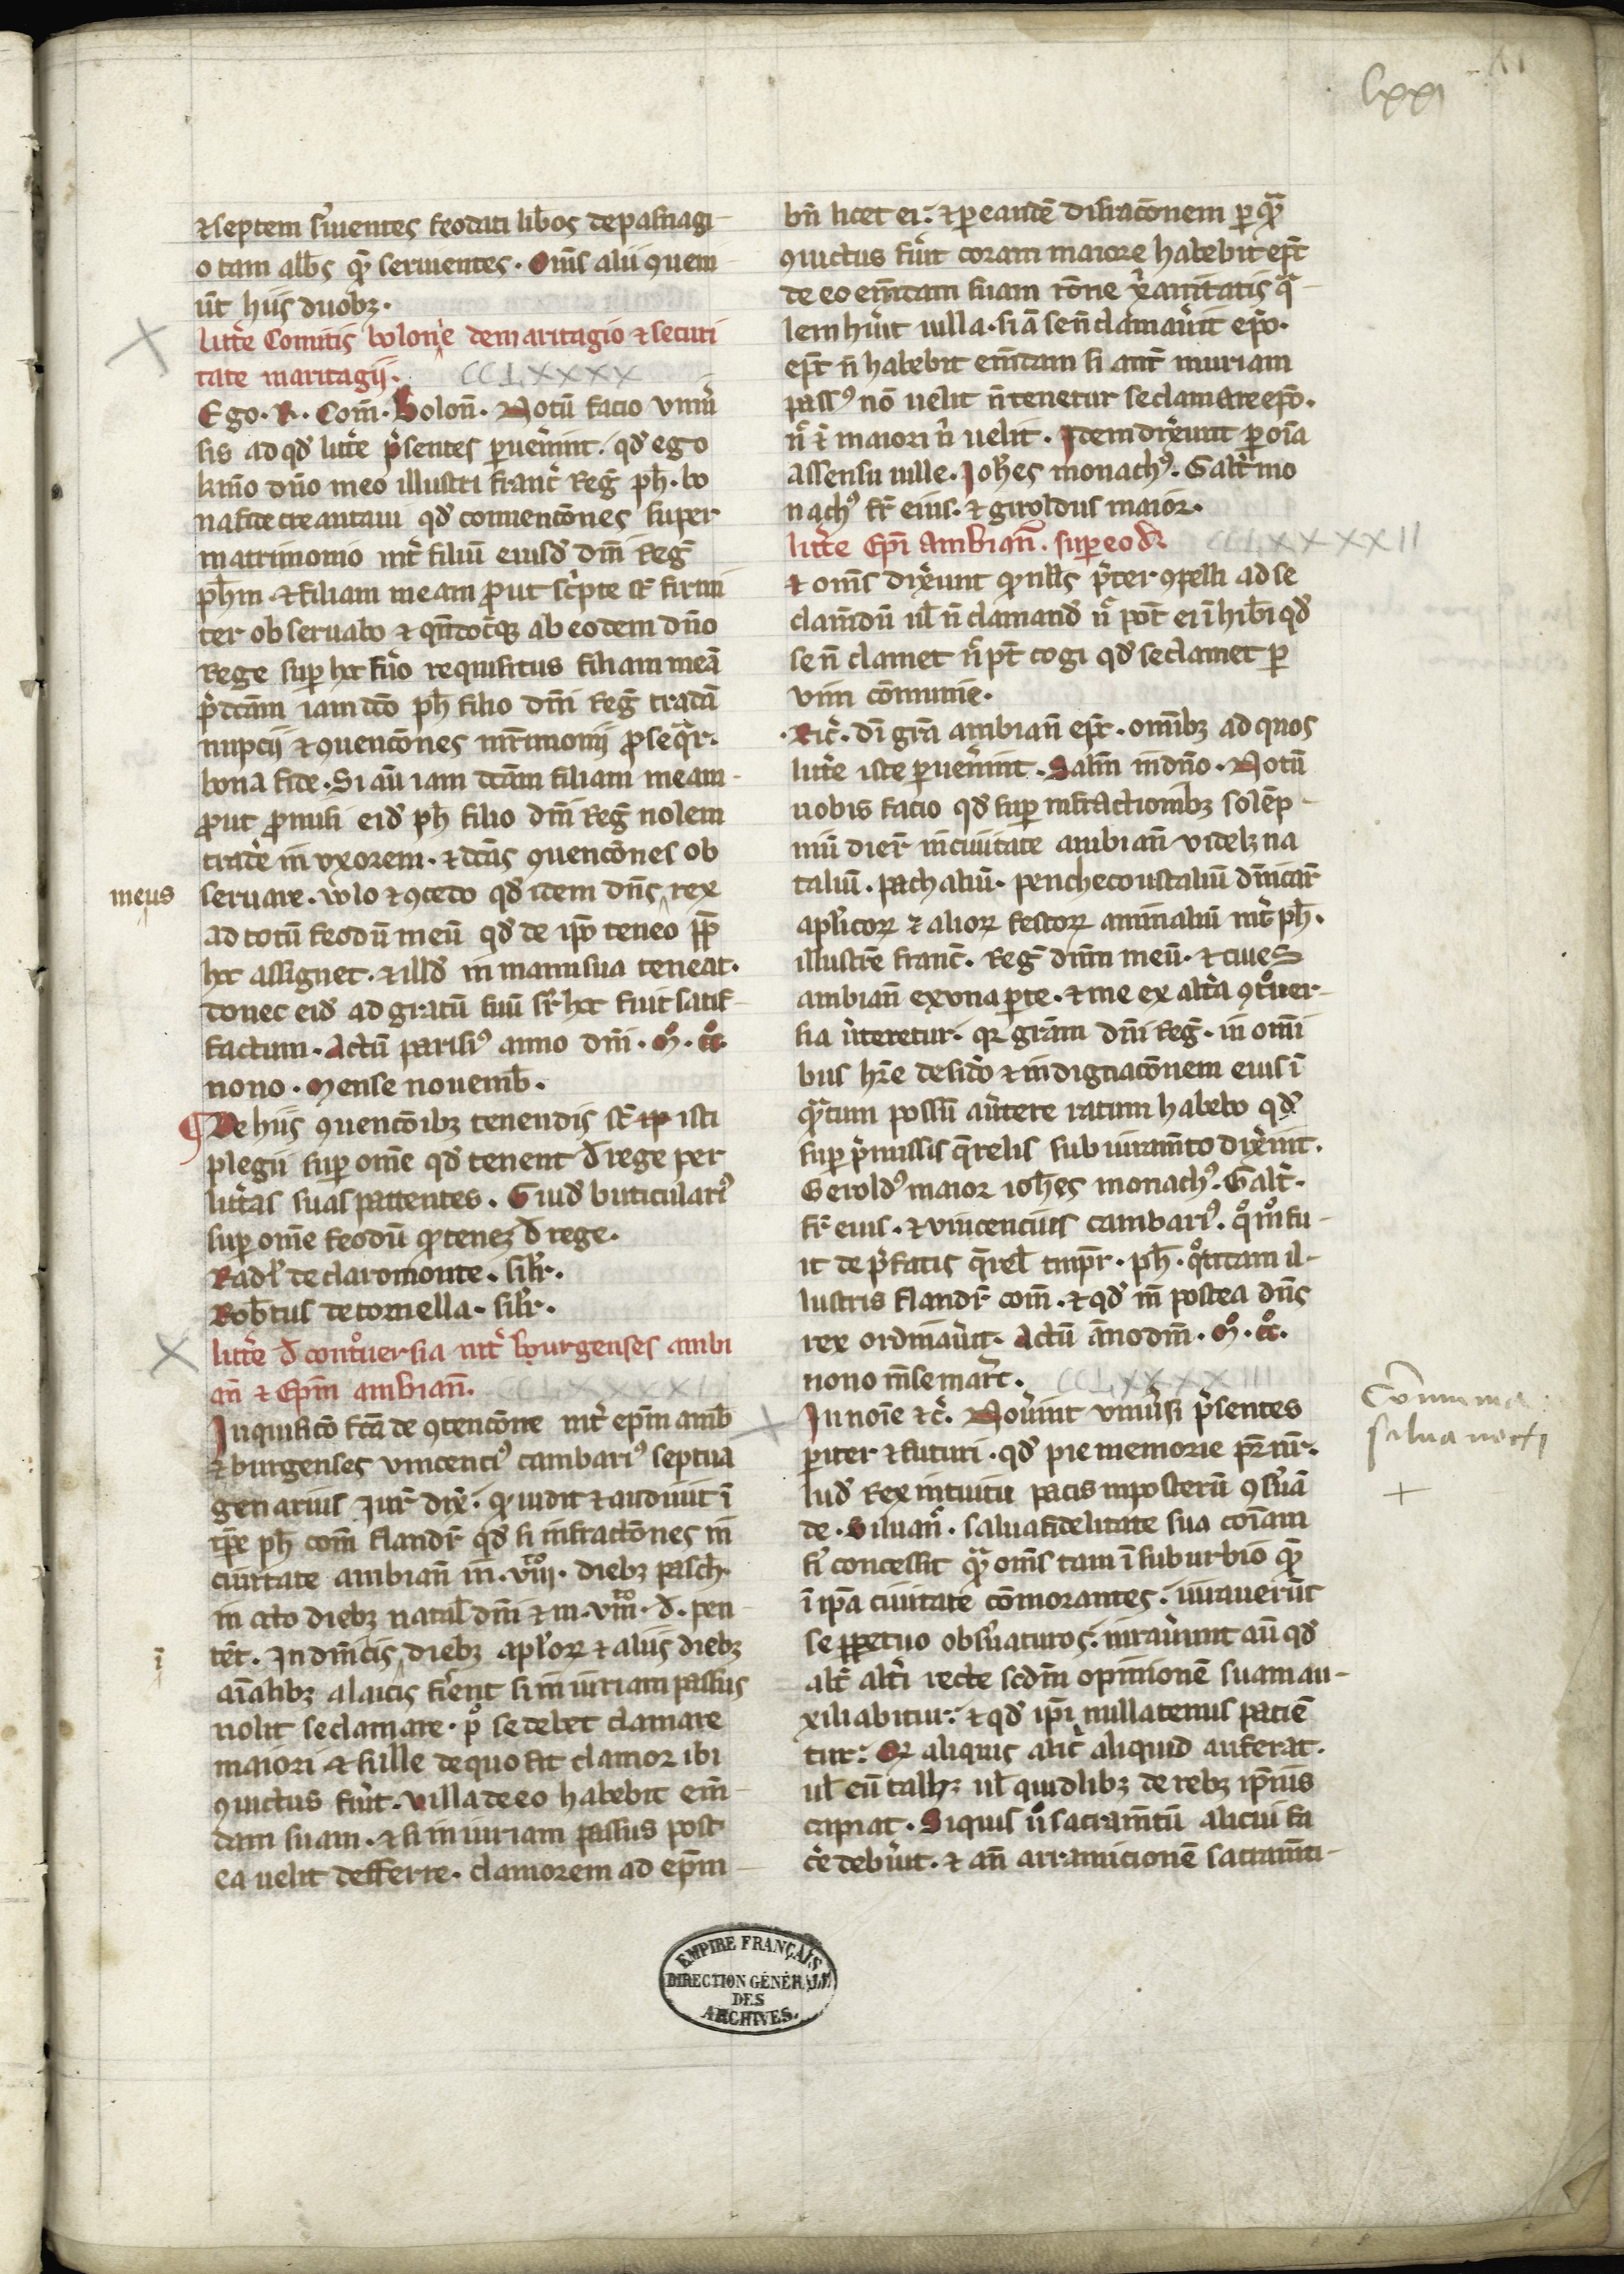 lxxi
⁊ septem s͛uientes feodati lib̄os de pasnagi-
o tam alb̄s qᷓ seruientes. Om̄s alii ꝯuem-
ūt hiis duobꝫ.
Litt͛e Comitis bolon͛e de maritagio ⁊ securi
tate maritagij.
CCLXXXX
Ego. R. Com̄. Bolon̄. Notū facio vniu͛
sis ad qd̄ litt͛e p͛sentes ꝑuen͛int. qd̄ ego
kr̄mo dn̄o meo illustri franc͛ Reg̃ ph̄. bo
na fide creantaui qd̄ conuencōnes super
matrimonio int͛ filiū eiusd̄ dn̄i Reg̃
ph̄m ⁊ filiam meam ꝓut sc͛pte st̄ firmi
ter obseruabo ⁊ qn̄docūqꝫ ab eodem dn̄o
Rege suꝑ hoc fu͛o requisitus filiam meā
p͛dcām iam dc̄o ph̄ filio dn̄i Reg̃ tradā
nupcij ⁊ ꝯuencōnes mr̄imonij ꝓseqᷓr.
bona fide. Si aū iam dc̄am filiam meam
ꝓut ꝓmisi eid̄ ph̄ filio dn̄i Reg̃ nolem
trad͛e in vxorem. ⁊ dc̄as ꝯuencōnes ob
meus
seruare. volo ⁊ ꝯcedo qd̄ idem dn̄s rex
ad totū feodū meū qd̄ de ip̄o teneo ꝓp̄
hoc assignet. ⁊ illd̄ in manu sua teneat.
donec eid̄ ad gratū suū sr̄ hoc fu͛it satis-
factum. Actū parisiꝰ anno dn̄i. M̊. CC̊
nono. Mense nouemb̄.
¶ De hiis ꝯuencōibꝫ tenendis st̄ ip isti
plegii suꝑ om̄e qd̄ tenent d̄ rege per
litt͛as suas pattentes. Guid̄ buticulariꝰ
suꝑ om̄e feodū qᷓ tenet d̄ rege.
Radl̄ de claromonte. sil͛r.
Rob̄tus de tornella. sil͛r.
Litt͛e d̄ cont͛uersia int͛ bourgenses ambi
an̄ ⁊ Ep̄m ambian̄.
CCLXXXXI
Inquisic̄o fc̄a de ꝯtencōne int͛ ep̄m amb̄
⁊ burgenses vincenciꝰ cambariꝰ septua
genarius Iur̄ dix̄. qᷓ uidit ⁊ audiuit ī
tp̄e ph̄ com̄ flandr̄ qd̄ si infractōnes in
ciuitate ambian̄ in. viii. diebꝫ pasch̄.
in octo diebꝫ natal̄ dn̄i ⁊ in. viii. d̄. pen-
ī
tēt. In dn̄icis diebꝫ apl̄oꝝ ⁊ aliis diebꝫ
aīalibꝫ a laicis fi͛ent si in iuriam passus
nolit se clamare. p̊ se debet clamare
maiori ⁊ fulle de quo fit clamor ibi
ꝯuictus fu͛it. villa de eo habebit em̄-
dam suam. ⁊ si in iuriam passus post
ea uelit defferre. clamorem ad ep̄m
bn̄ licet ei: ⁊ ꝑ eandē disracōnem ꝑ qᷓ
ꝯuictus fu͛it coram maiore habebit ep̄c
de eo em̄dam suam rōne x͛anitatis qᷓ-
lem hu͛it uilla. si ā se n̄ clamau͛it ep̄o.
ep̄c n̄ habebit em̄dam si aut̄ iniuriam
passꝰ nō uelit n̄ tenetur se clamare ep̄o.
n͛ ⁊ maiori n͛ uelit. Idem dix͛unt ꝑ oīa
assensu uille. Ioh̄es monachꝰ. Galt͛ mo
nachꝰ fr̄ eius. ⁊ giroldus maior.
Litt͛e Ep̄i Ambian̄. suꝑ eod̄.
CCLXXXXII
⁊ om̄s dix͛unt qᷓ nll̄s p͛ter ꝯpelli ad se
clam̄dū ul̄ n̄ clamand̄ n͛ pōt ei īhib͛i qd̄
se n̄ clamet n͛ pt̄ cogi qd̄ se clamet ꝑ
vim cōmunie.
.Ric͛. di gr̄a ambian̄ ep̄c. omībꝫ ad quos
litt͛e iste ꝑuen͛int. Salm̄ in dn̄o. Notū
uobis facio qd̄ suꝑ infractionibꝫ solēp-
niū dier̄ in ciuitate ambian̄ videlꝫ na
taliū. paschaliū. penthecoustaliū dn̄icar̄
apl̄icoꝝ ⁊ alioꝝ festoꝝ animaliū int͛ ph̄.
illustrē franc̄. Reg̃ dn̄m meū. ⁊ ciues
ambian̄ ex vna ꝑte. ⁊ me ex alt͛a ꝯt͛uer-
sia u͛teretur. qꝛ gr̄am dn̄i Reg̃. in om̄i
bus hr̄e desid͛o ⁊ indignacōnem eius ī
qᷓtum possū au͛tere ratum habebo qd̄
suꝑ p͛missis q̄relis sub iuram̄to dix͛int.
Geroldꝰ maior ioh̄es monachꝰ. Galt͛.
fr̄ eius. ⁊ vincencius cambariꝰ. q̊m̊ fu-
it de p͛fatis q̄rel̄ tmpr̄. ph̄. q̊ndam il-
lustris flandr̄ com̄. ⁊ qd̄ m̄ postea dn̄s
rex ordinau͛it. Actū āno dn̄i. M̊. CC̊.
nono m̄se marc̄.
CCLXXXXIII
In noīe ⁊c͛. Nou͛int vniu͛si p͛sentes
ꝑiter ⁊ futuri. qd̄ pie memorie pr̄ nr̄.
lud̄ Rex intuitu pacis inposterū ꝯs͛uā
de. Siluan͛. salua fidelitate sua coīam
fi͛ concessit qᷓ om̄s tam ī suburbio qᷓ
ī ip̄a ciuitate cōmorantes. iurauerūt
se ꝑpetuo obs͛uaturos. iurau͛unt aū qd̄
alt͛ alt͛i recte scdm̄ opinionē suam au-
xiliabitur: ⁊ qd̄ ip̄i nullatenus patiē
tur: Qꝛ aliquis alic͛ aliquid auferat.
ul̄ cū talh̄ꝫ ul̄ quidlibꝫ de rebꝫ ip̄ius
capiat. Siquis u̇ sacram̄tū alicui fa
c͛e debu͛it. ⁊ an̄ arramicionē sacram̄ti-
Cōmunia
siluanecti
+
EMPIRE FRANÇAIS
DIRECTION GÉNÉRALE
DES
ARCHIVES.